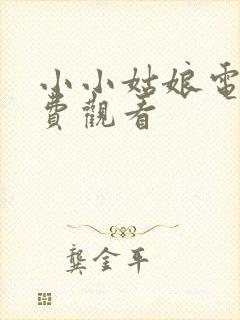 小小姑娘電
費觀看
龔金平